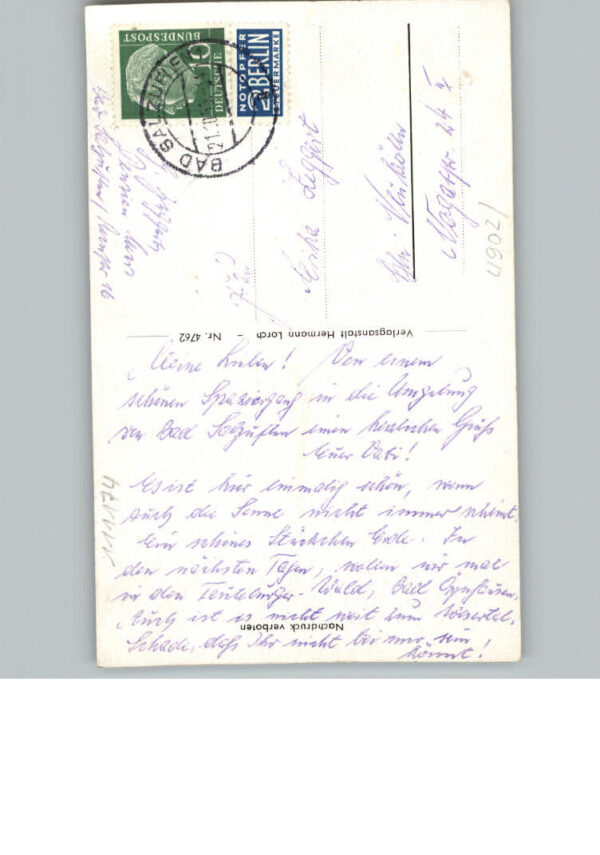 10
DEUTSCHE
BUNDESPOST
NOTOPFER
2 BERLIN
STEUERMARKE
BAD SALZUFLEN
Bad Salzuflen
16
Familie
4902/
Verlagsanstalt Hermann Lorch - Nr. 4762
Meine Lieben! Von einem
schönen Spaziergang in die Umgebung
von Bad Salzuflen einen herzlichen Gruß
Euer Vati!
Es ist hier einmalig schön, wenn
auch die Sonne nicht immer scheint.
Ein schönes Stückchen Erde. In
den nächsten Tagen, wollen wir mal
in den Teuteburger-Wald, Bad Oynhausen.
Auch ist es nicht weit zum Wesertal.
Schade, daß Ihr nicht bei mir sein
könnt!
Nachdruck verboten